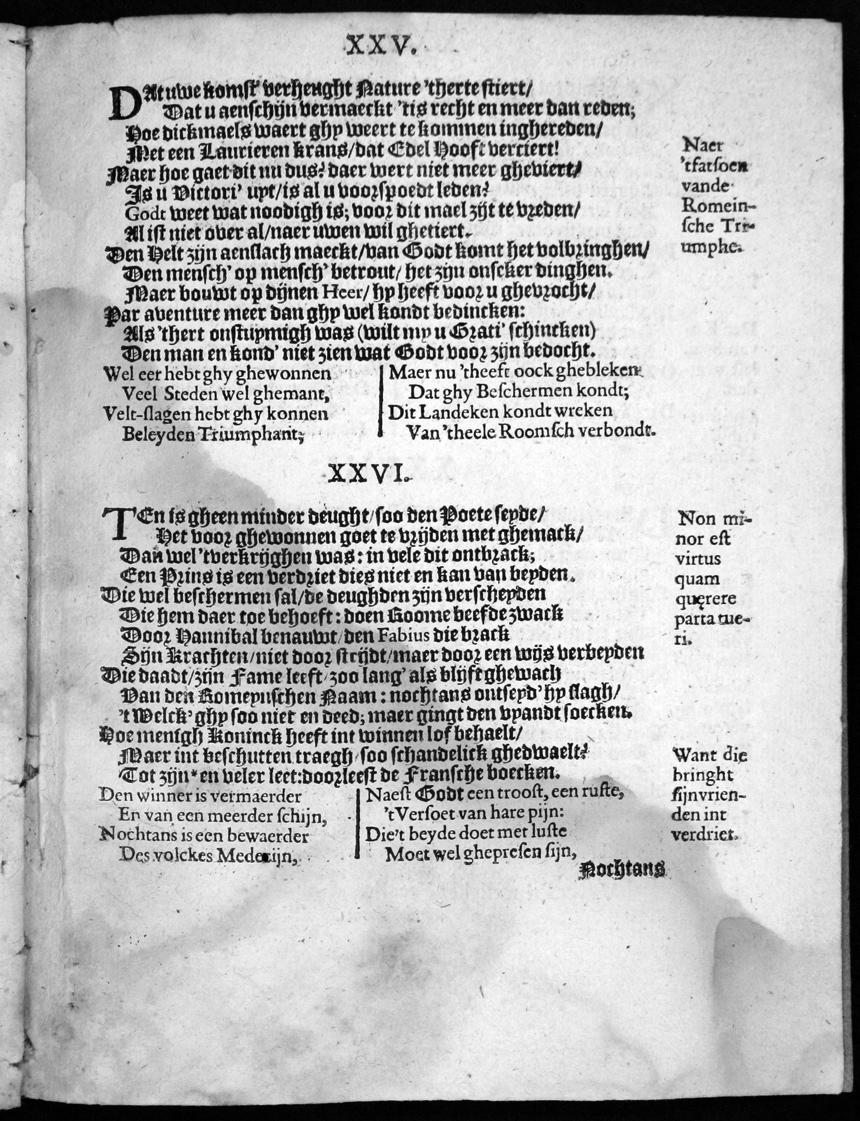 XXV.
DAt uwe komst' verheught Nature 'therte stiert/
Dat u aenschijn vermaeckt 'tis recht en meer dan reden;
Hoe dickmaels waert ghy weert te kommen inghereden/
Met een Laurieren krans/dat Edel Hooft verciert!
Maer hoe gaet dit nu dus? daer wert niet meer gheviert/
Is u Victori' uyt/is al u voorspoedt leden?
Godt weet wat noodigh is; voor dit mael zijt te vreden/
Al ist niet over al/naer uwen wil ghetiert.
Den Helt zijn aenslach maeckt/van Godt komt het volbringhen/
Den mensch' op mensch' betrout/ het zijn onseker dinghen.
Maer bouwt op dijnen Heer/ hy heeft voor u ghevrocht/
Par aventure meer dan ghy wel kondt bedincken:
Als 'thert onstuymigh was (wilt my u Grati' schincken)
Den man en kond' niet zien wat Godt voor zijn bedocht.
Naer
'tfatsoen
vande
Romein-
sche Tri-
umphe.
Wel eer hebt ghy ghewonnen
Veel Steden wel ghemant,
Velt-slagen hebt ghy konnen
Beleyden Triumphant;
Maer nu 'theeft oock ghebleken
Dat ghy Beschermen kondt;
Dit Landeken kondt wreken
Van 'theele Roomsch verbondt.
XXVI.
TEn is gheen minder deught/soo den Poete seyde/
Het voor ghewonnen goet te vrijden met ghemack/
Dan wel 'tverkrijghen was: in vele dit ontbrack;
Een Prins is een verdriet dies niet en kan van beyden.
Die wel beschermen sal/de deughden zijn verscheyden
Die hem daer toe behoeft: doen Roome beefde zwack
Door Hannibal benauwt/den Fabius die brack
Sijn Krachten/niet door strijdt/maer door een wijs verbeyden
Die daadt/zijn Fame leeft/zoo lang' als blijft ghewach
Van den Romeynschen Naam: nochtans ontseyd' hy slagh/
't Welck' ghy soo niet en deed; maer gingt den vyandt soecken.
Hoe menigh Koninck heeft int winnen lof behaelt/
Maer int beschutten traegh/soo schandelick ghedwaelt?
Tot zijn* en veler leet: doorleest de Fransche boecken.
Non mi-
nor est
virtus
quam
quęrere
parta tue-
ri.
Want die
bringht
sijn vrien-
den int
verdriet.
Den winner is vermaerder
En van een meerder schijn,
Nochtans is een bewaerder
Des volckes Medecijn,
Naest Godt een troost, een ruste,
'tVersoet van hare pijn:
Die't beyde doet met luste
Moet wel ghepresen sijn,
Nochtans